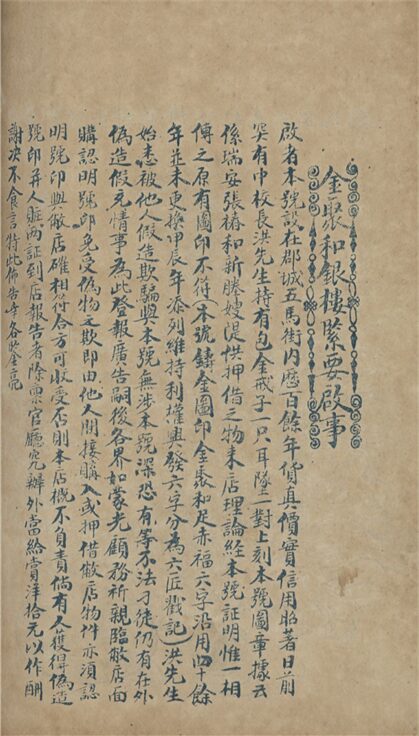 金聚和銀樓緊要啟事
啟者本號設在郡城五馬街內歷百餘年貨真價實信用昭著日前
突有中校長洪先生持有包金戒子一只耳墜一對上刻本號圖章據云
係瑞安張椿和新勝嫂混供押借之物來店理論經本號証明惟一相
傳之原有圖印不符(本號鑄金圖印金聚和足赤福六字沿用四十餘
年並未更換甲辰年添列維持利權興發六字分為六匠戳記)洪先生
始悉被他人假造欺騙與本號無涉本號深恐有等不法刁徒仍有在外
偽造假充情事為此登報廣告嗣後各界如蒙光顧務祈親臨敝店面
購認明號印免受偽物之欺即由他人間接購入或押借敝店物件亦須認
明號印與敝店確相符合方可收受否則本店概不負責倘有人獲得偽造
號印并人賍兩証到店報告者除稟官廳究辦外當給賞洋拾元以作酬
謝决不食言特此佈告幸各荃亮